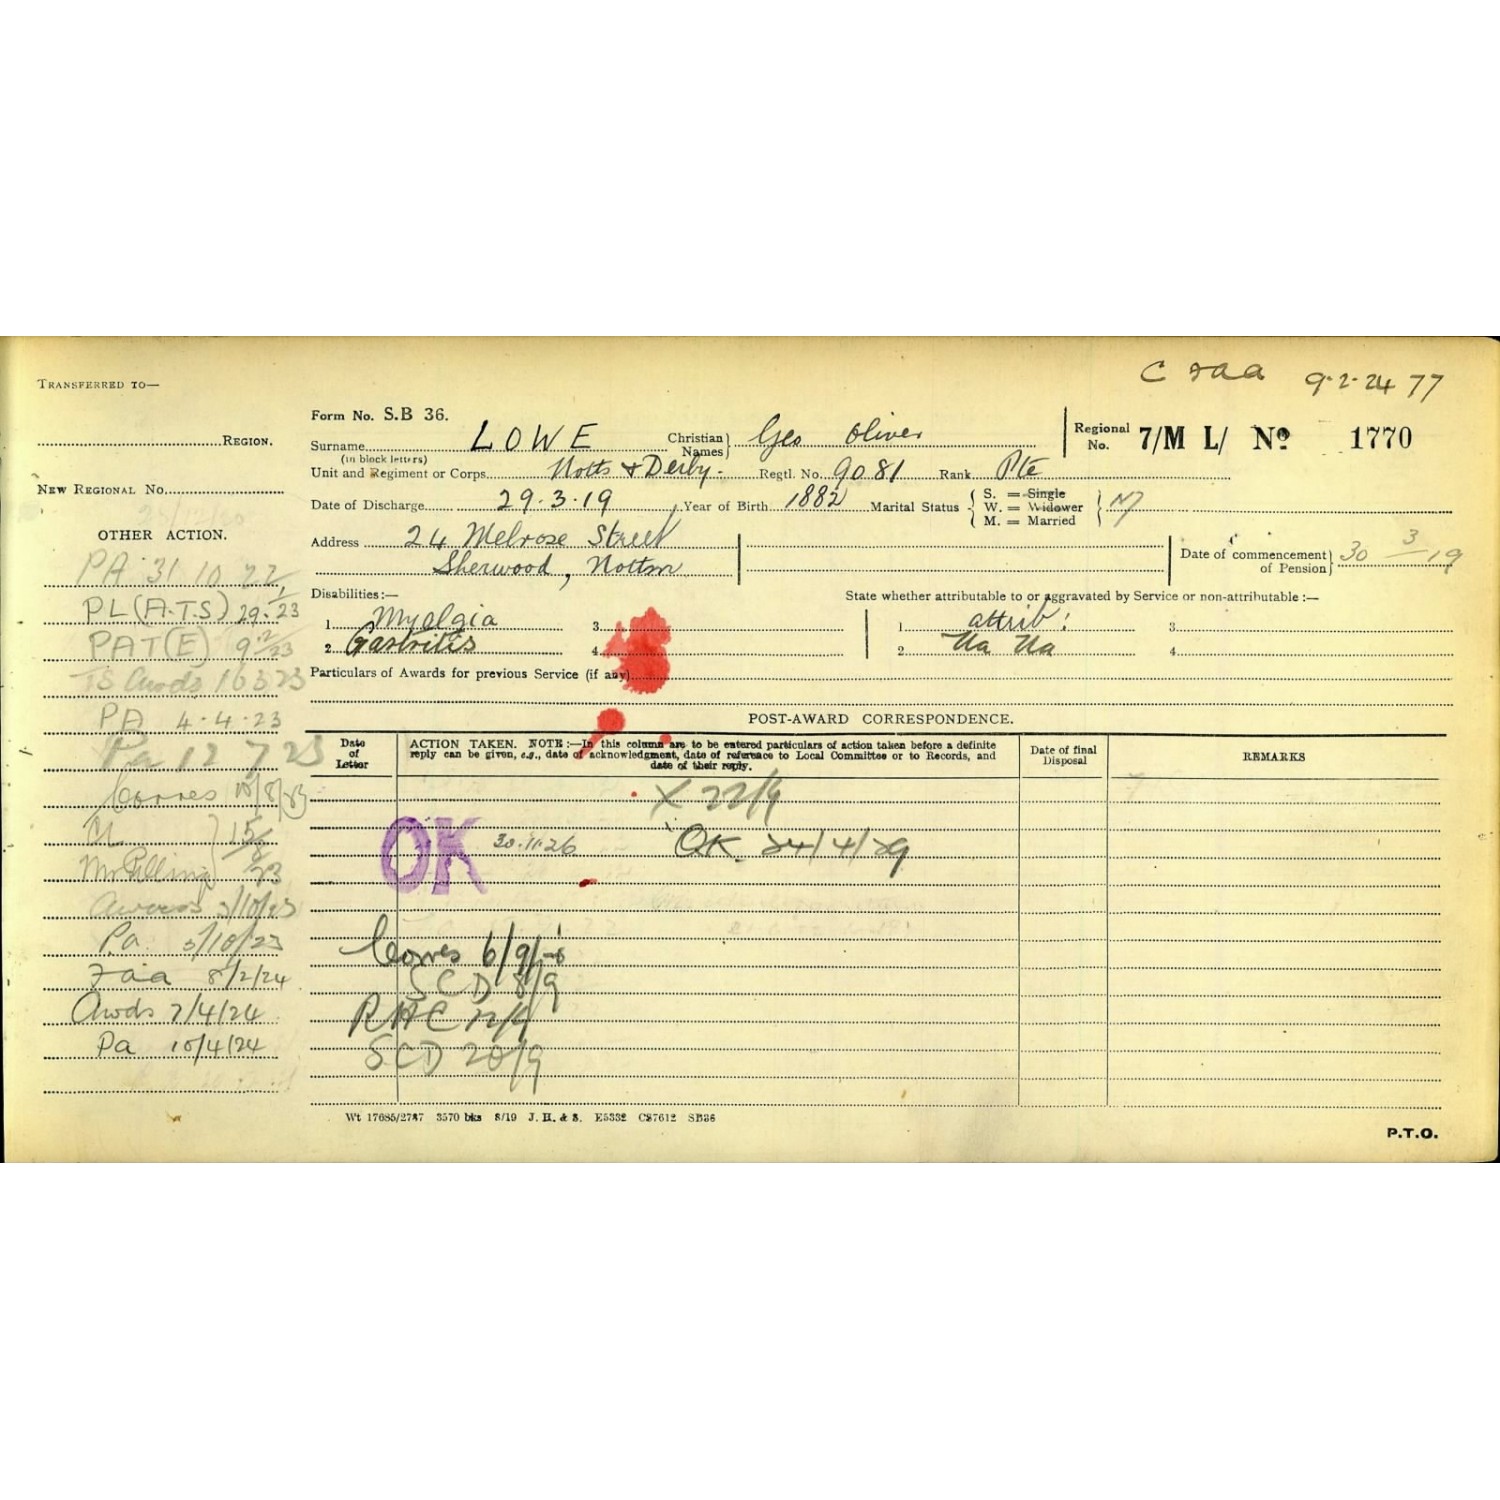 C 7aa 9·2·24 77
TRANSFERRED TO—
REGION.
NEW REGIONAL NO.
OTHER ACTION.
PA 31 10 22
PL(A.T.S) 29·1/23
PAT(E) 9 2/23
TS Awds 16 3 23
PA 4·4·23
Pa 12 7 23
Corres 10/8/23
15/8/23
Pa 5/10/23
7aa 8/2/24
Awds 7/4/24
Pa 10/4/24
Form No. S.B 36.
Surname LOWE Christian Names} Geo Oliver
(in block letters)
Regional No. 7/M L/ No 1770
Unit and Regiment or Corps. Notts & Derby. Regtl. No. 9081 Rank Pte
Date of Discharge 29.3.19 Year of Birth 1882 Marital Status { S. = Single W. = Widower M. = Married } M
Address 24 Melrose Street
Sherwood, Nottm
Date of commencement of Pension} 30 3/19
Disabilities:— State whether attributable to or aggravated by Service or non-attributable :—
1. Myalgia 3. 1. attrib: 3.
2. Gastritis 4. 2. Na Na 4.
Particulars of Awards for previous Service (if any)
POST-AWARD CORRESPONDENCE.
Date of Letter
ACTION TAKEN. NOTE:—In this column are to be entered particulars of action taken before a definite
reply can be given, e.g., date of acknowledgment, date of reference to Local Committee or to Records, and
date of their reply.
Date of final Disposal
REMARKS
X 22/9
OK 30.11.26 OK. 24/4/29
Corres 6/9
SCD 8/9
SCD 20/9
Wt 17685/2787 3570 bks 8/19 J. H. & S. E5332 CS7612 SB36
P.T.O.